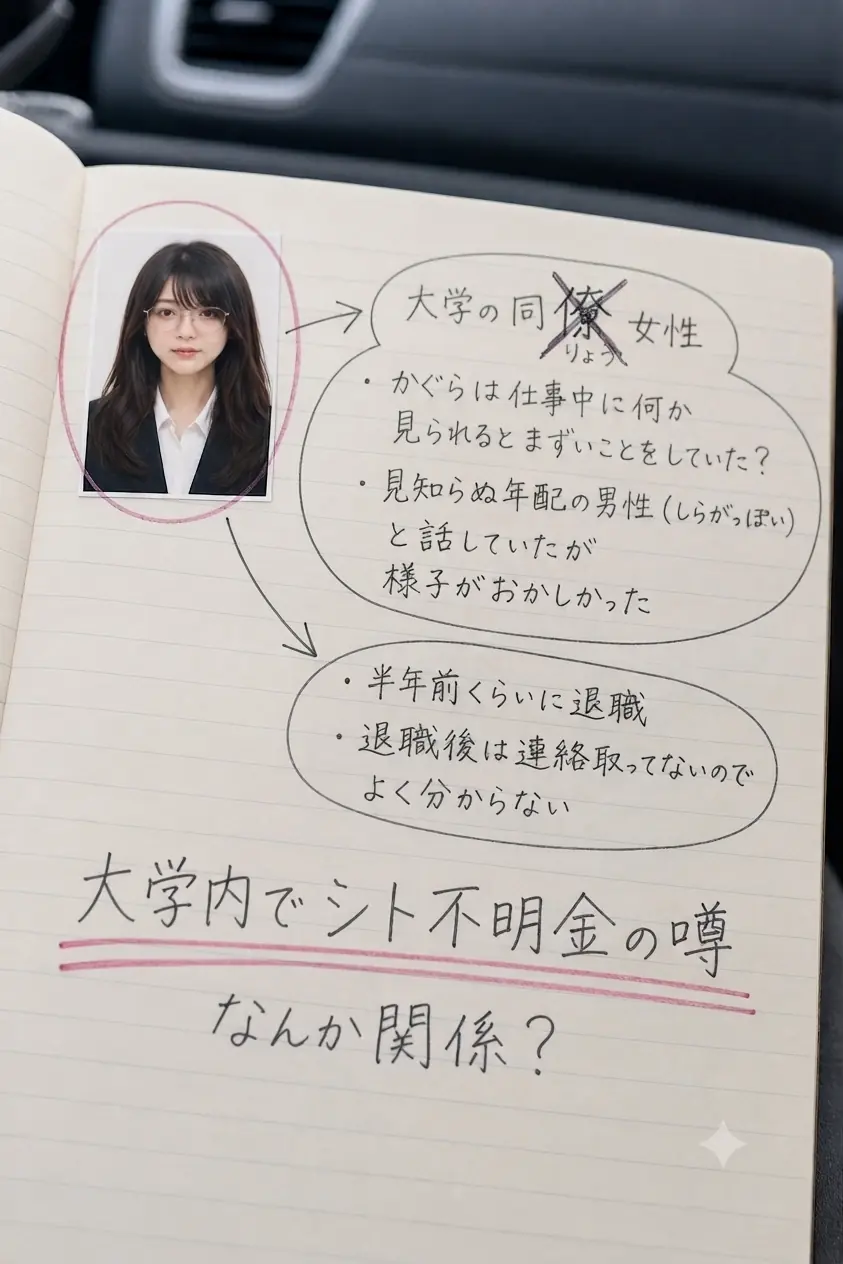 大学の同僚女性
りょう
・かぐらは仕事中に何か
見られるとまずいことをしていた？
・見知らぬ年配の男性(しらがっぽい)
と話していたが
様子がおかしかった
・半年前くらいに退職
・退職後は連絡取ってないので
よく分からない
大学内でシト不明金の噂
なんか関係？